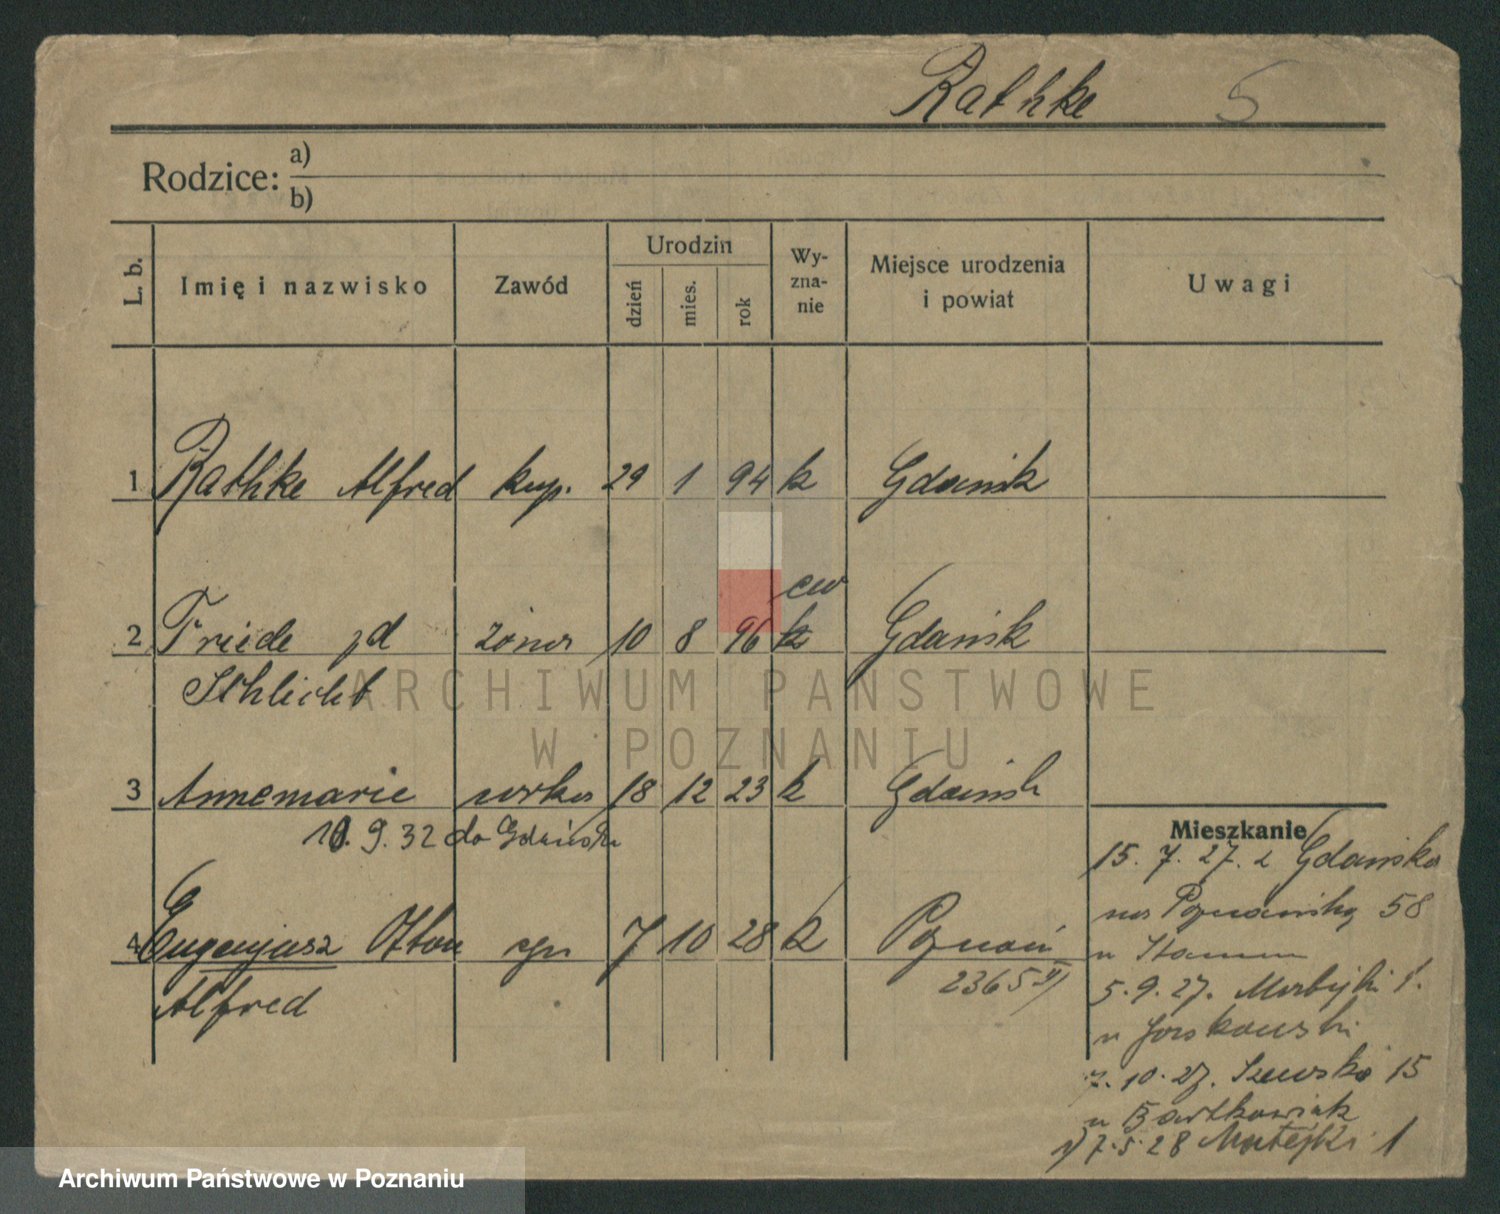 Rathke 5
Rodzice: a)
b)
L. b. Imię i nazwisko Zawód Urodzin dzień mies. rok Wy-zna-nie Miejsce urodzenia i powiat Uwagi
1 Rathke Alfred kup. 29 1 94 k Gdańsk
ew
2 Friede zd żona 10 8 96 k Gdańsk
Schlicht
ARCHIWUM PAŃSTWOWE
W POZNANIU
3 Annemarie córka 18 12 23 k Gdańsk
10. 9. 32 do Gdańska
Mieszkanie
15. 7. 27. z Gdańska
na Poznańską 58
u
4 Eugenjusz Otton syn 7 10 28 k Poznań
Alfred
2365
5. 9. 27. Matejki 1.
u
7. 10. 27. Szewska 15
u Bartkowiak
7. 5. 28 Matejki 1
Archiwum Państwowe w Poznaniu